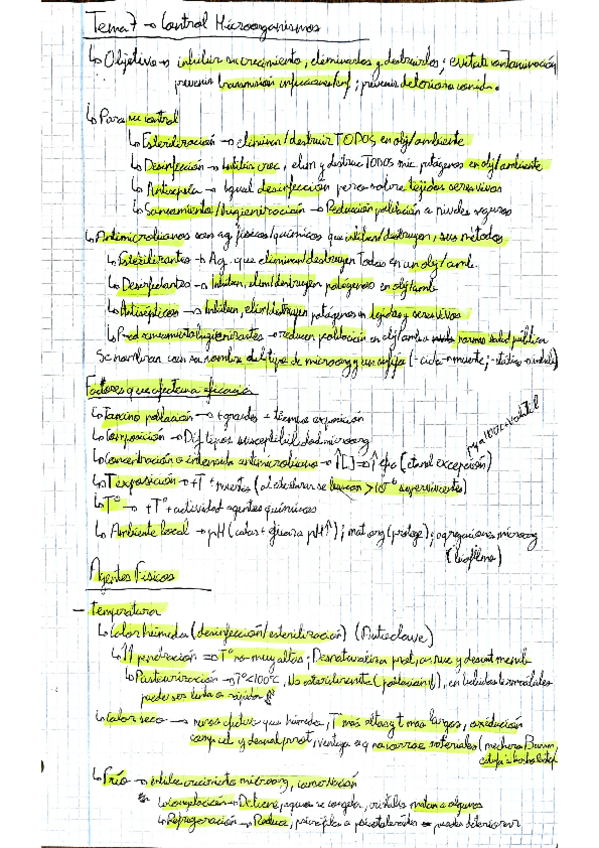 Tema 7 → Control Microorganismos
↳ Objetivo → inhibir su crecimiento, eliminarlos y destruirlos; evitar contaminación
prevenir transmisión ; prevenir deterioro comida.
↳ Para su control
↳ Esterilización → eliminar/destruir TODOS en obj/ambiente
↳ Desinfección → Inhibir crec, elim y destruc TODOS mic. patógenos en obj/ambiente
↳ Antisepsia → Igual desinfección pero sobre tejidos seres vivos
↳ Saneamiento/higienización → Reducción población a niveles seguros
↳ Antimicrobianos son ag. físicos/químicos que inhiben/destruyen, sus métodos
↳ Esterilizantes → Ag. que eliminen/destruyen Todos en un obj/amb.
↳ Desinfectantes → Inhiben, elim/destruyen patógenos en obj/amb
↳ Antisépticos → Inhiben, elim/destruyen patógenos en tejidos y seres vivos
reducen población en obj/amb a normas salud pública
Se nombran con su nombre del tipo de microorg y un sufijo (-cida → muerte; -stático → inhib)
Factores que afectan a eficacia
↳ Tamaño población → + grandes + tiempo exposición
↳ Composición → Dif tipos susceptibilidad microorg
↳ Concentración o intensidad antimicrobiano → ↑[ ] ⇒ ↑ (etanol excepción)
↳ T exposición → +T + muertes (al esterilizar se buscan > 10⁻⁶ supervivientes)
↳ Tº → +Tº + actividad agentes químicos
↳ Ambiente local → pH (calor + pH↑); mat org (protege); agregaciones microorg
(biofilms)
Agentes Físicos
– Temperatura
↳ Calor húmedo (desinfección/esterilización) (Autoclave)
↳ ↑↑ penetración ⇒ Tº no muy altas; Desnaturaliza prot, ác nuc y desint memb
↳ Pasteurización → Tº<100ºC, No esterilizante (población ↓), en bebidas termolábiles
puede ser lenta o rápida
↳ Calor seco → menos efectivo que húmedo, T más altas y t más largos, oxidación
comp cel y desnat prot, ventaja es q no corroe materiales (mechero Bunsen,
↳ Frío → inhibe crecimiento microorg, conservación
↳ Congelación → Detiene, agua se congela, cristales matan a algunos
↳ Refrigeración → Reduce, psicrófilos o psicotolerantes pueden deteriorar